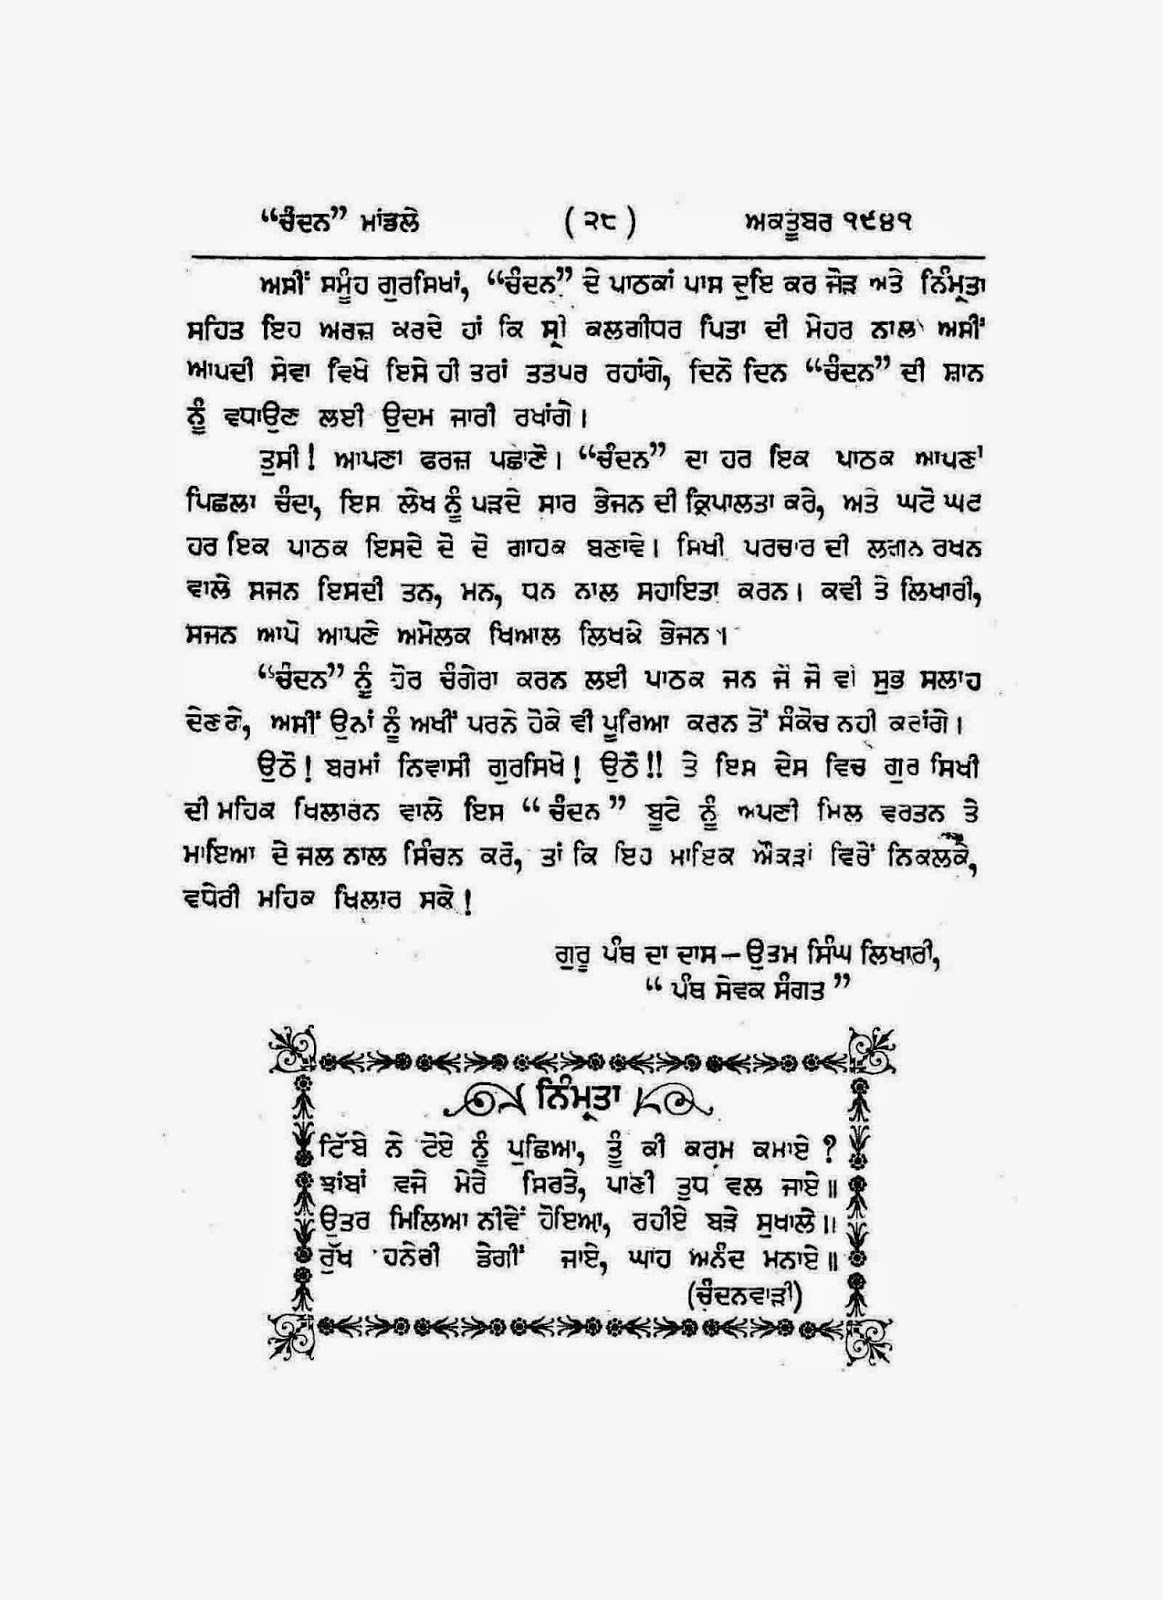 “ਚੰਦਨ” ਮਾਂਡਲੇ ( ੨੮ ) ਅਕਤੂਬਰ ੧੯੪੧
ਅਸੀਂ ਸਮੂੰਹ ਗੁਰਸਿਖਾਂ, “ਚੰਦਨ” ਦੇ ਪਾਠਕਾਂ ਪਾਸ ਦੁਇ ਕਰ ਜੋੜ ਅਤੇ ਨਿੰਮ੍ਰਤਾ
ਸਹਿਤ ਇਹ ਅਰਜ਼ ਕਰਦੇ ਹਾਂ ਕਿ ਸ੍ਰੀ ਕਲਗੀਧਰ ਪਿਤਾ ਦੀ ਮੇਹਰ ਨਾਲ ਅਸੀਂ
ਆਪਦੀ ਸੇਵਾ ਵਿਖੇ ਇਸੇ ਹੀ ਤਰਾਂ ਤਤਪਰ ਰਹਾਂਗੇ, ਦਿਨੋ ਦਿਨ “ਚੰਦਨ” ਦੀ ਸ਼ਾਨ
ਨੂੰ ਵਧਾਉਣ ਲਈ ਉਦਮ ਜਾਰੀ ਰਖਾਂਗੇ।
ਤੁਸੀ! ਆਪਣਾ ਫਰਜ਼ ਪਛਾਣੋ। “ਚੰਦਨ” ਦਾ ਹਰ ਇਕ ਪਾਠਕ ਆਪਣਾਂ
ਪਿਛਲਾ ਚੰਦਾ, ਇਸ ਲੇਖ ਨੂੰ ਪੜਦੇ ਸਾਰ ਭੇਜਨ ਦੀ ਕ੍ਰਿਪਾਲਤਾ ਕਰੇ, ਅਤੇ ਘਟੋ ਘਟ
ਹਰ ਇਕ ਪਾਠਕ ਇਸਦੇ ਦੋ ਦੋ ਗਾਹਕ ਬਣਾਵੇ। ਸਿਖੀ ਪਰਚਾਰ ਦੀ ਲਗਨ ਰਖਨ
ਵਾਲੇ ਸਜਨ ਇਸਦੀ ਤਨ, ਮਨ, ਧਨ ਨਾਲ ਸਹਾਇਤਾ ਕਰਨ। ਕਵੀ ਤੇ ਲਿਖਾਰੀ,
ਸਜਨ ਆਪੋ ਆਪਣੇ ਅਮੋਲਕ ਖਿਆਲ ਲਿਖਕੇ ਭੇਜਨ।
“ਚੰਦਨ” ਨੂੰ ਹੋਰ ਚੰਗੇਰਾ ਕਰਨ ਲਈ ਪਾਠਕ ਜਨ ਜੋ ਜੋ ਵੀ ਸੁਭ ਸਲਾਹ
ਦੇਣਗੇ, ਅਸੀਂ ਉਨਾਂ ਨੂੰ ਅਖੀਂ ਪਰਨੇ ਹੋਕੇ ਵੀ ਪੂਰਿਆ ਕਰਨ ਤੋਂ ਸੰਕੋਚ ਨਹੀ ਕਰਾਂਗੇ।
ਉਠੋ! ਬਰਮਾਂ ਨਿਵਾਸੀ ਗੁਰਸਿਖੋ! ਉਠੋ!! ਤੇ ਇਸ ਦੇਸ ਵਿਚ ਗੁਰ ਸਿਖੀ
ਦੀ ਮਹਿਕ ਖਿਲਾਰਨ ਵਾਲੇ ਇਸ “ ਚੰਦਨ ” ਬੂਟੇ ਨੂੰ ਅਪਣੀ ਮਿਲ ਵਰਤਨ ਤੇ
ਮਾਇਆ ਦੇ ਜਲ ਨਾਲ ਸਿੰਚਨ ਕਰੋ, ਤਾਂ ਕਿ ਇਹ ਮਾਇਕ ਔਕੜਾਂ ਵਿਚੋਂ ਨਿਕਲਕੇ,
ਵਧੇਰੀ ਮਹਿਕ ਖਿਲਾਰ ਸਕੇ!
ਗੁਰੂ ਪੰਥ ਦਾ ਦਾਸ—ਉਤਮ ਸਿੰਘ ਲਿਖਾਰੀ,
“ ਪੰਥ ਸੇਵਕ ਸੰਗਤ ”
ਨਿੰਮ੍ਰਤਾ
ਟਿੱਬੇ ਨੇ ਟੋਏ ਨੂੰ ਪੁਛਿਆ, ਤੂੰ ਕੀ ਕਰਮ ਕਮਾਏ ?
ਝਾਂਬਾਂ ਵਜੇ ਮੇਰੇ ਸਿਰਤੇ, ਪਾਣੀ ਤੁਧ ਵਲ ਜਾਏ॥
ਉਤਰ ਮਿਲਿਆ ਨੀਵੇਂ ਹੋਇਆ, ਰਹੀਏ ਬੜੇ ਸੁਖਾਲੇ॥
ਰੁੱਖ ਹਨੇਰੀ ਡੇਗੀਂ ਜਾਏ, ਘਾਹ ਅਨੰਦ ਮਨਾਏ॥
(ਚੰਦਨਵਾੜੀ)